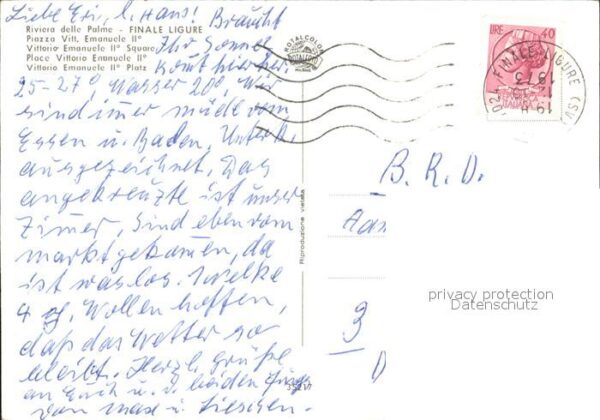 Liebe Evi, l. Hans! Braucht
Riviera delle Palme - FINALE LIGURE
Piazza Vitt. Emanuele II°
Vittorio Emanuele II° Square
Place Vittorio Emanuele II°
Vittorio Emanuele II° Platz
Ihr Sonne
kommt hierher.
25-27°, Wasser 20°, Wir
sind immer müde vom
Essen u. Baden, Unterk.
ausgezeichnet. Das
angekreuzte ist unser
Zimer, Sind eben vom
marktgekomen, da
ist was los. Nelke
4 Wollen hoffen,
daß das Wetter so
bleibt. Herzl. grüße
an Euch u. d. beiden Jungs
von max u. Lieschen.
ROTALCOLOR
ROTALFOTO
MILANO
Riproduzione vietata
LIRE 40
FINALE LIGURE (SV)
1973
B. R. D.
Aa
3
D
privacy protection
Datenschutz